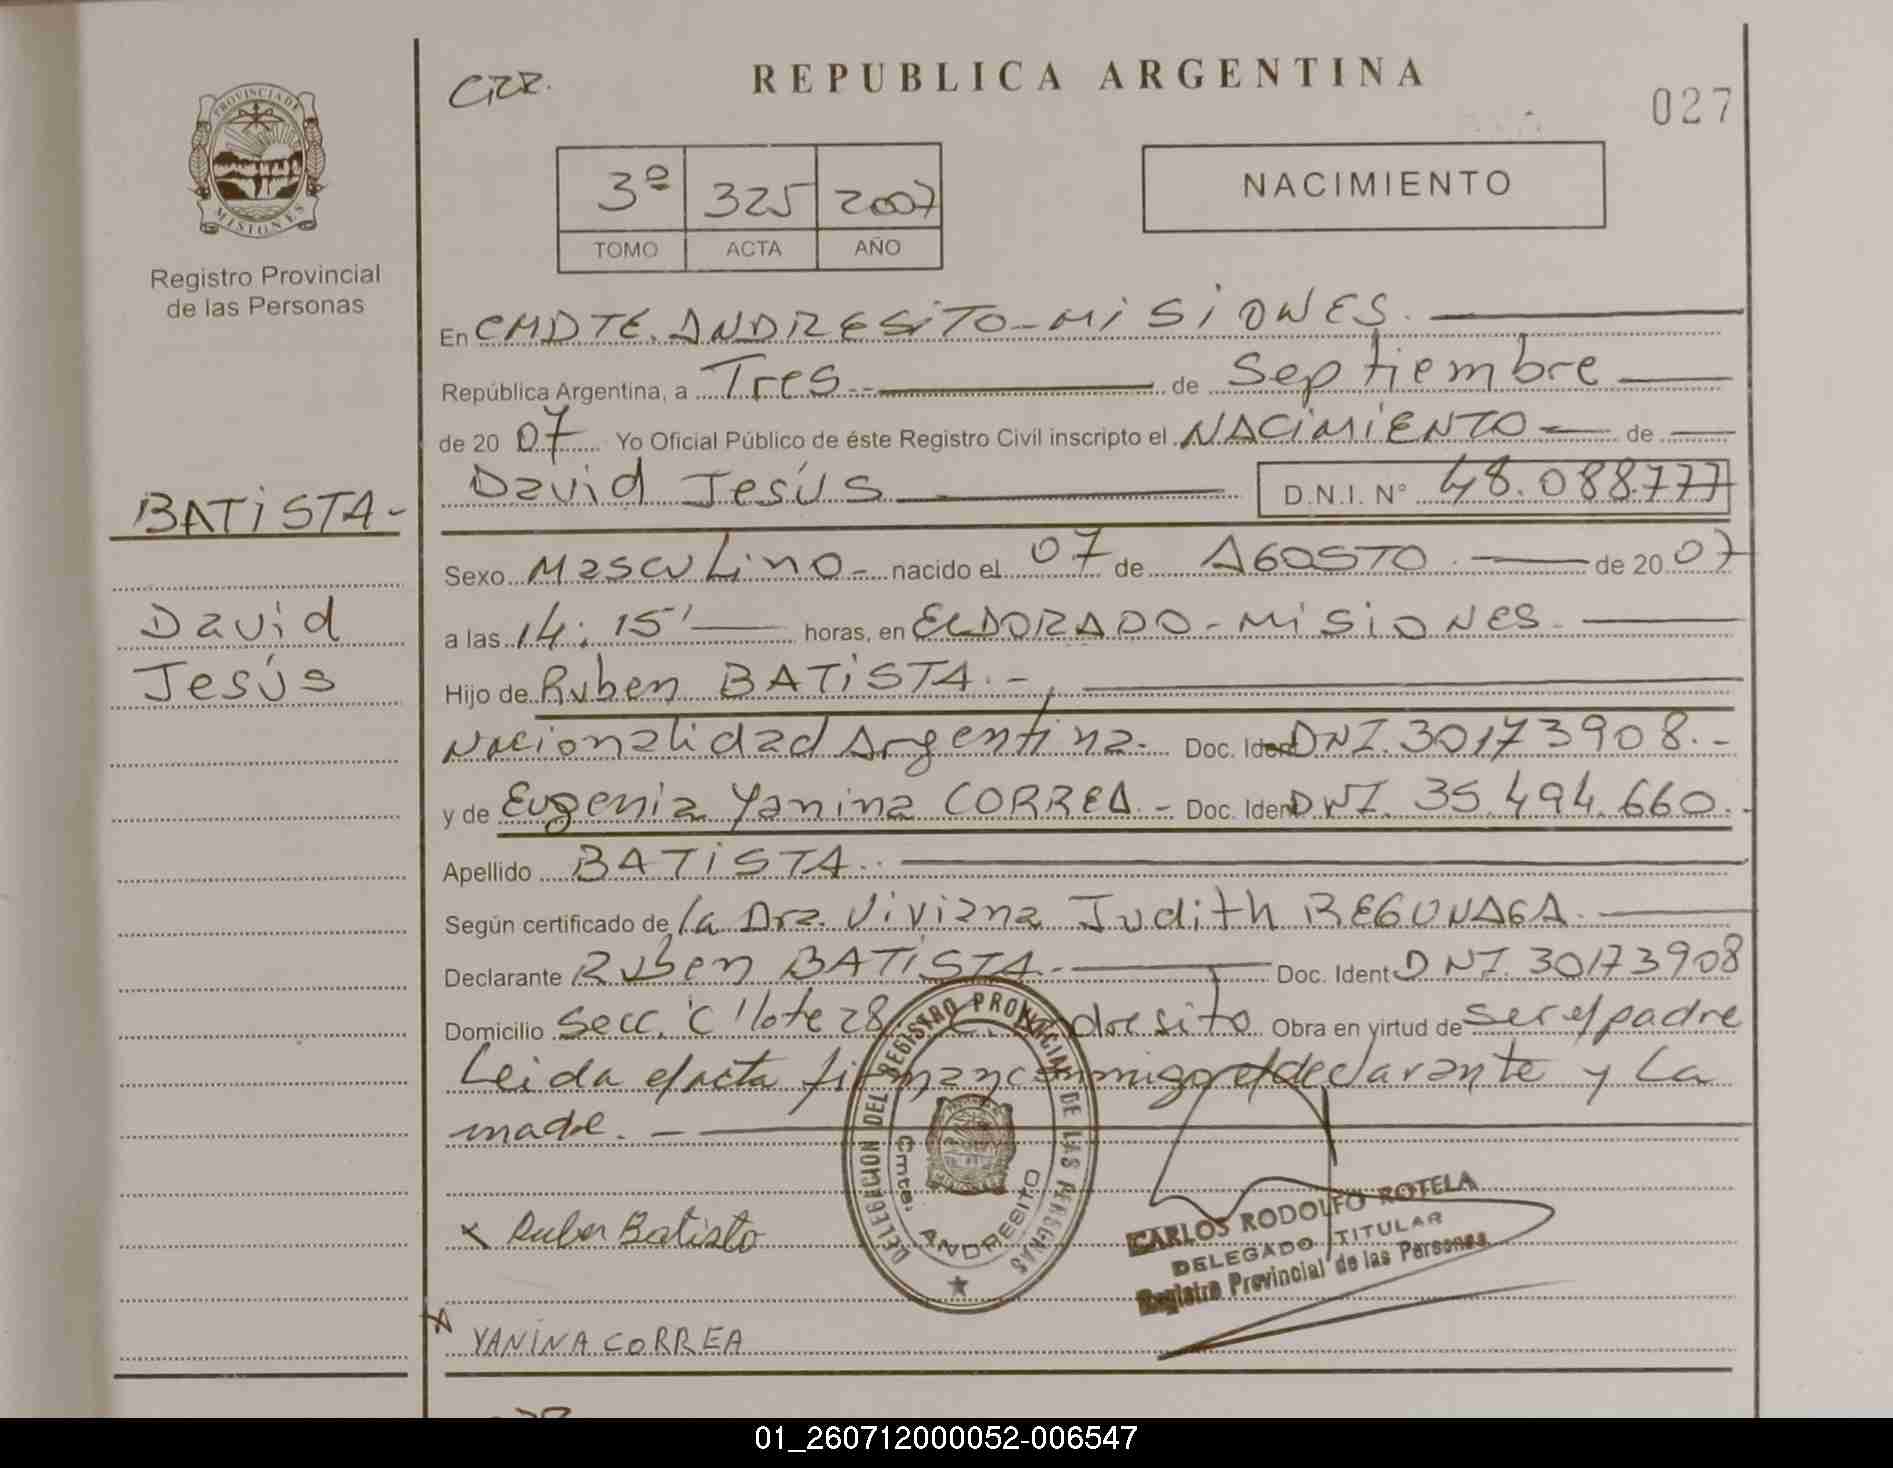 REPUBLICA ARGENTINA
027
PROVINCIA DE
MISIONES
Registro Provincial
de las Personas
3º 325 2007
TOMO ACTA AÑO
NACIMIENTO
En CMDTE. ANDRESITO - MISIONES.
República Argentina, a Tres de Septiembre
de 20 07 Yo Oficial Público de éste Registro Civil inscripto el NACIMIENTO de
David Jesús D.N.I. N° 48.088.777
BATISTA-
David
Jesús
Sexo Masculino - nacido el 07 de AGOSTO de 20 07
a las 14:15' horas, en ELDORADO - MISIONES.
Hijo de Ruben BATISTA.-
Nacionalidad Argentina. Doc. Ident DNI. 30173908.-
y de Eugenia Yanina CORREA.- Doc. Ident DNI. 35.494.660.-
Apellido BATISTA.
Según certificado de la Dra. Viviana Judith REGUNAGA.
Declarante Ruben BATISTA.- Doc. Ident DNI. 30173908
Domicilio Secc. "C" lote 28 Obra en virtud de ser el padre
Leida el acta firman conmigo el declarante y La
madre.
DELEGACION DEL REGISTRO PROVINCIAL DE LAS PERSONAS
Cmte. ANDRESITO
x Ruben Batista
CARLOS RODOLFO ROTELA
DELEGADO TITULAR
Registro Provincial de las Personas
x YANINA CORREA
01_260712000052-006547